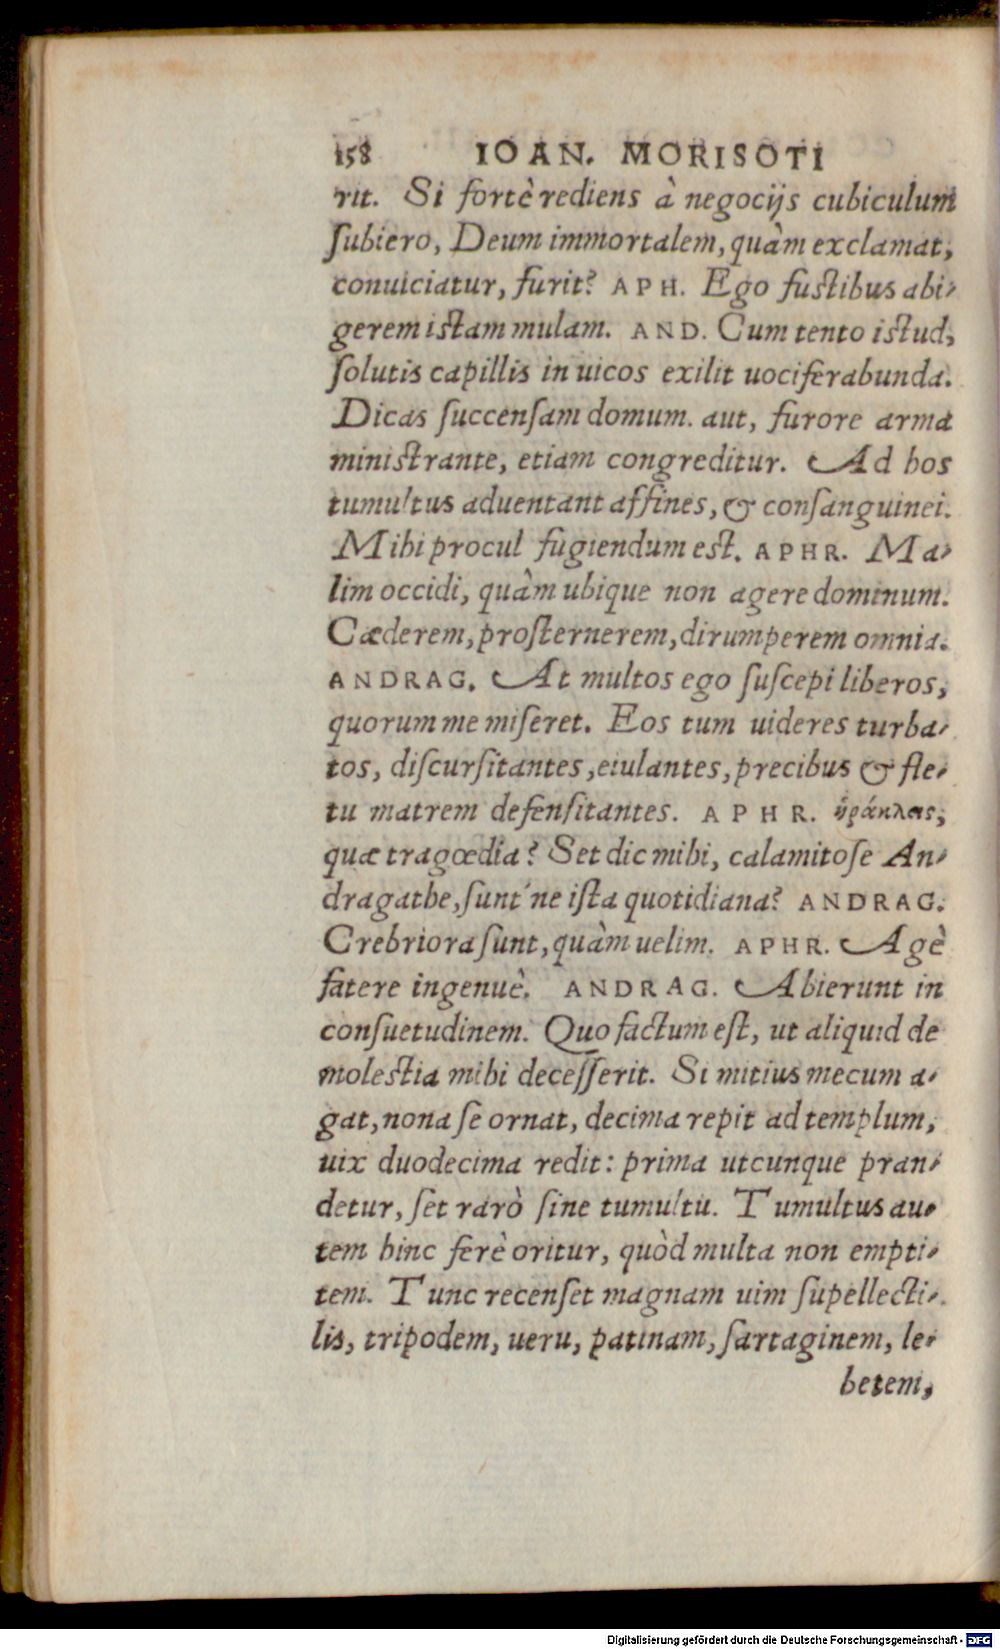 158 IOAN. MORISOTI
rit. Si fortè rediens à negocijs cubiculum
ſubiero, Deum immortalem, quàm exclamat,
conuiciatur, furit? APH. Ego fuſtibus abi-
gerem iſtam mulam. AND. Cum tento iſtud,
ſolutis capillis in uicos exilit uociferabunda.
Dicas ſuccenſam domum. aut, furore arma
miniſtrante, etiam congreditur. Ad hos
tumultus aduentant affines, & conſanguinei.
Mihi procul fugiendum eſt. APHR. Ma-
lim occidi, quàm ubique non agere dominum.
Cæderem, proſternerem, dirumperem omnia.
ANDRAG. At multos ego ſuſcepi liberos,
quorum me miſeret. Eos tum uideres turba-
tos, diſcurſitantes, eiulantes, precibus & fle-
tu matrem defenſitantes. APHR. ἡράκλεις,
quæ tragœdia? Set dic mihi, calamitoſe An-
dragathe, ſunt'ne iſta quotidiana? ANDRAG.
Crebriora ſunt, quàm uelim. APHR. Agè
fatere ingenuè. ANDRAG. Abierunt in
conſuetudinem. Quo factum eſt, ut aliquid de
moleſtia mihi deceſſerit. Si mitius mecum a-
gat, nona ſe ornat, decima repit ad templum,
uix duodecima redit: prima utcunque pran-
detur, ſet rarò ſine tumultu. Tumultus au-
tem hinc ferè oritur, quòd multa non empti-
tem. Tunc recenſet magnam uim ſupellecti-
lis, tripodem, ueru, patinam, ſartaginem, le-
betem,
Digitalisierung gefördert durch die Deutsche Forschungsgemeinschaft - DFG